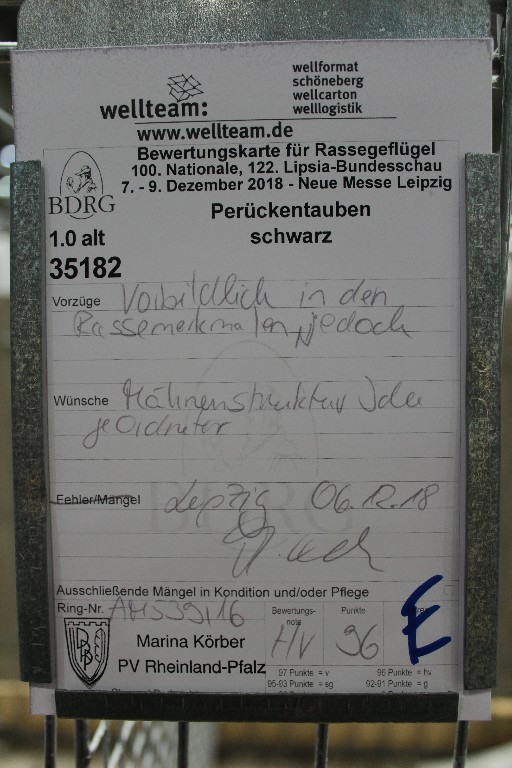 wellteam:
wellformat
schöneberg
wellcarton
welllogistik
www.wellteam.de
BDRG
Bewertungskarte für Rassegeflügel
100. Nationale, 122. Lipsia-Bundesschau
7. - 9. Dezember 2018 - Neue Messe Leipzig
Perückentauben
1.0 alt
schwarz
35182
Vorzüge Vorbildlich in den
Rassemerkmalen, jedoch
Wünsche Mähnenstruktur
geordneter
Fehler/Mängel Leipzig 06.12.18
BDRG
Ausschließende Mängel in Kondition und/oder Pflege
Ring-Nr. AH539/16
Bewertungs-
note
HV
Punkte
96
E
Marina Körber
PV Rheinland-Pfalz
97 Punkte = v
96 Punkte = hv
95-93 Punkte = sg
92-91 Punkte = g